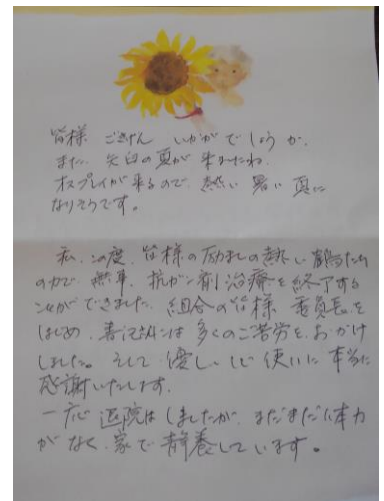 皆様 ごきげん いかがでしょうか。
また 灼白の夏が 来ましたね。
オスプレイが来るので、熱い 暑い 夏に
なりそうです。
私、この度、皆様の励ましの熱い
の力で 無事、抗ガン剤治療を終了する
ことができました。組合の皆様 委員長を
はじめ、書記には多くのご苦労を、おかけ
しました。そして優しい心使いに本当に
感謝いたします。
一応 退院はしましたが、まだまだ体力
がなく、家で静養しています。